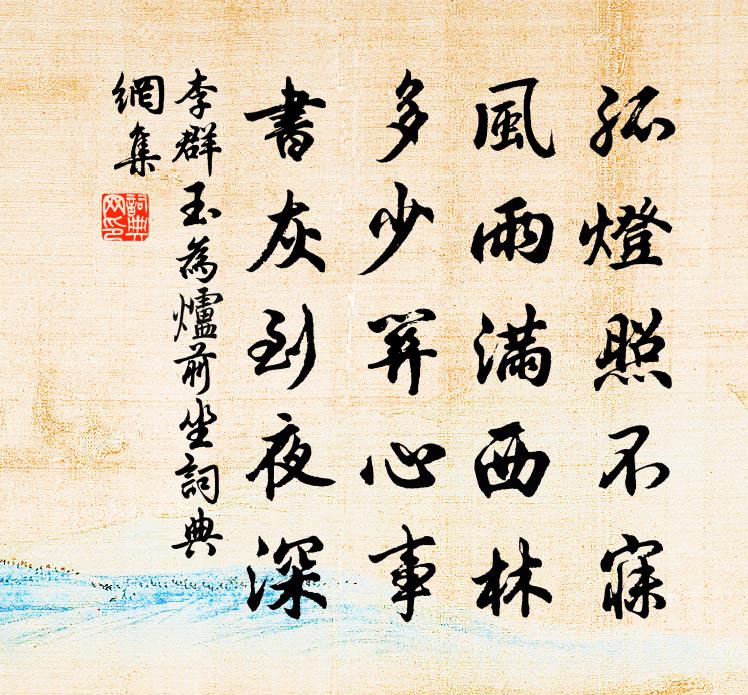 孤燈照不寐
風雨滿西林
多少關心事
書灰到夜深
李群玉為爐前坐詞典
網集
詞典網印